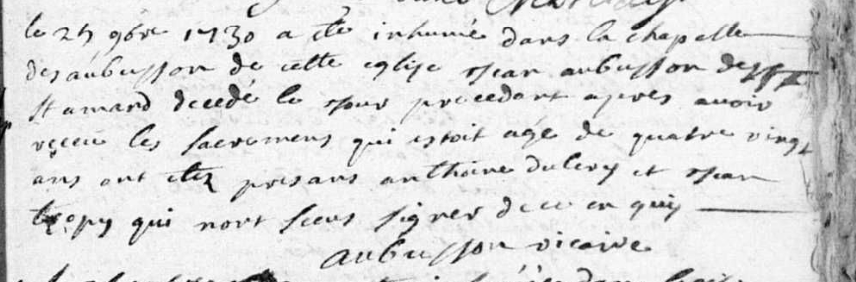 le 25 9bre 1730 a ete inhumé dans la chapelle
des aubusson de cette eglise Jean aubusson de
St amand decedé le Jour precedant apres avoir
receu les sacremens qui estoit agé de quatre vingt
ans ont etez presans anthoine et Jean
qui nont sceus signer de ce enquis
aubusson vicaire